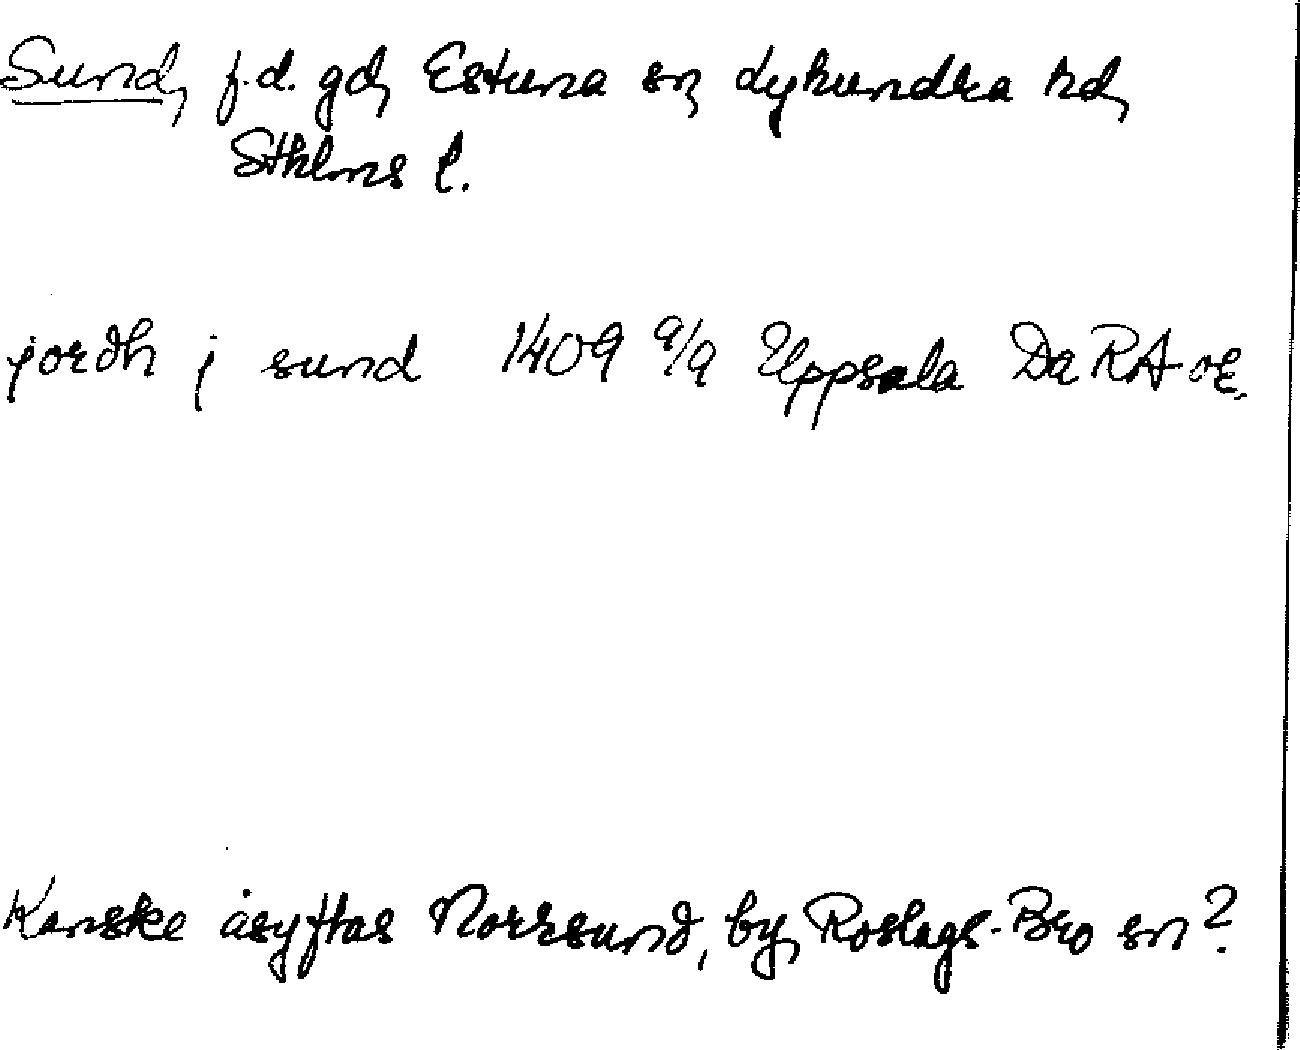 Sund, f.d. gd, Estuna sn, Lyhundra hd,
Sthlms l.
jordh j sund 1409 9/9 Uppsala Da RA or.
Kanske åsyftas Norrsund, by, Roslags-Bro sn?